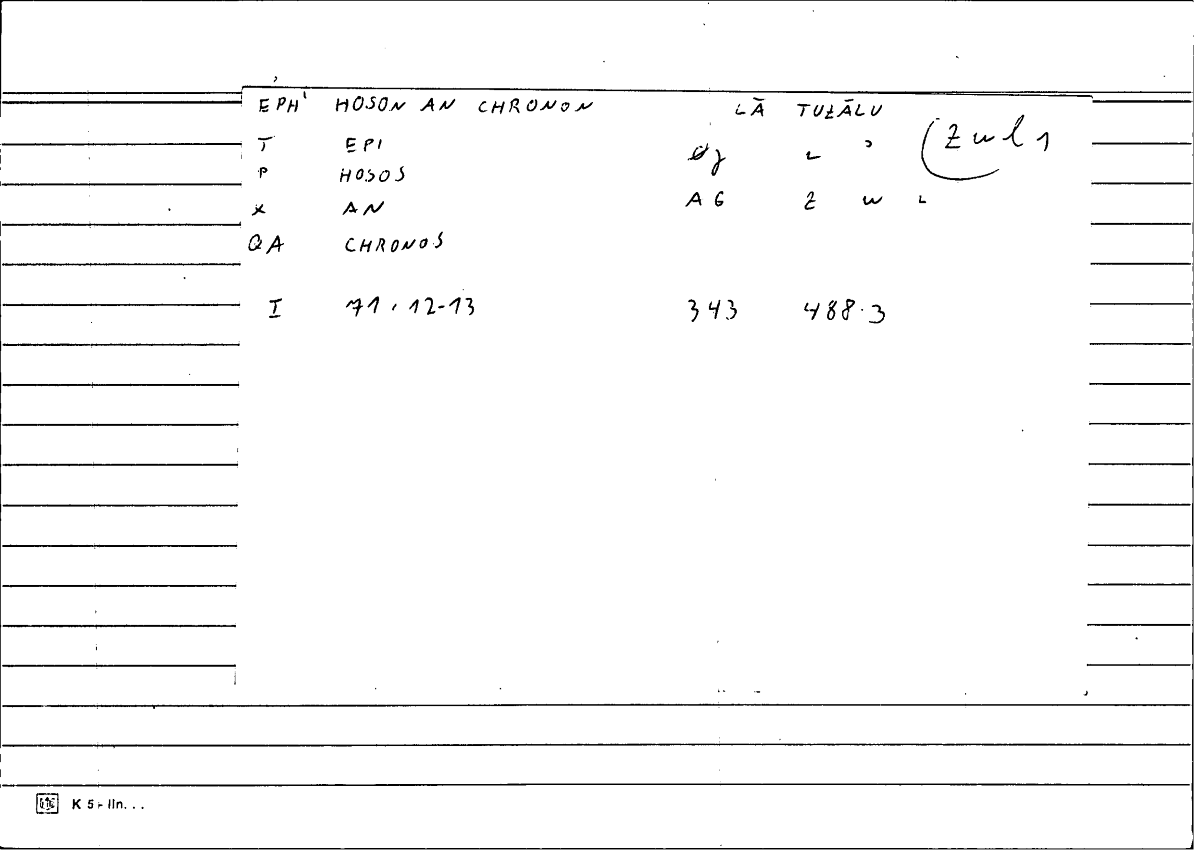 EPH' HOSON AN CHRONON LĀ TUZĀLU
T EPI L ' (Zwl 1
P HOSOS
X AN AG Z W L
QA CHRONOS
I 71 . 12-13 343 488.3
K 5 - lln. . .